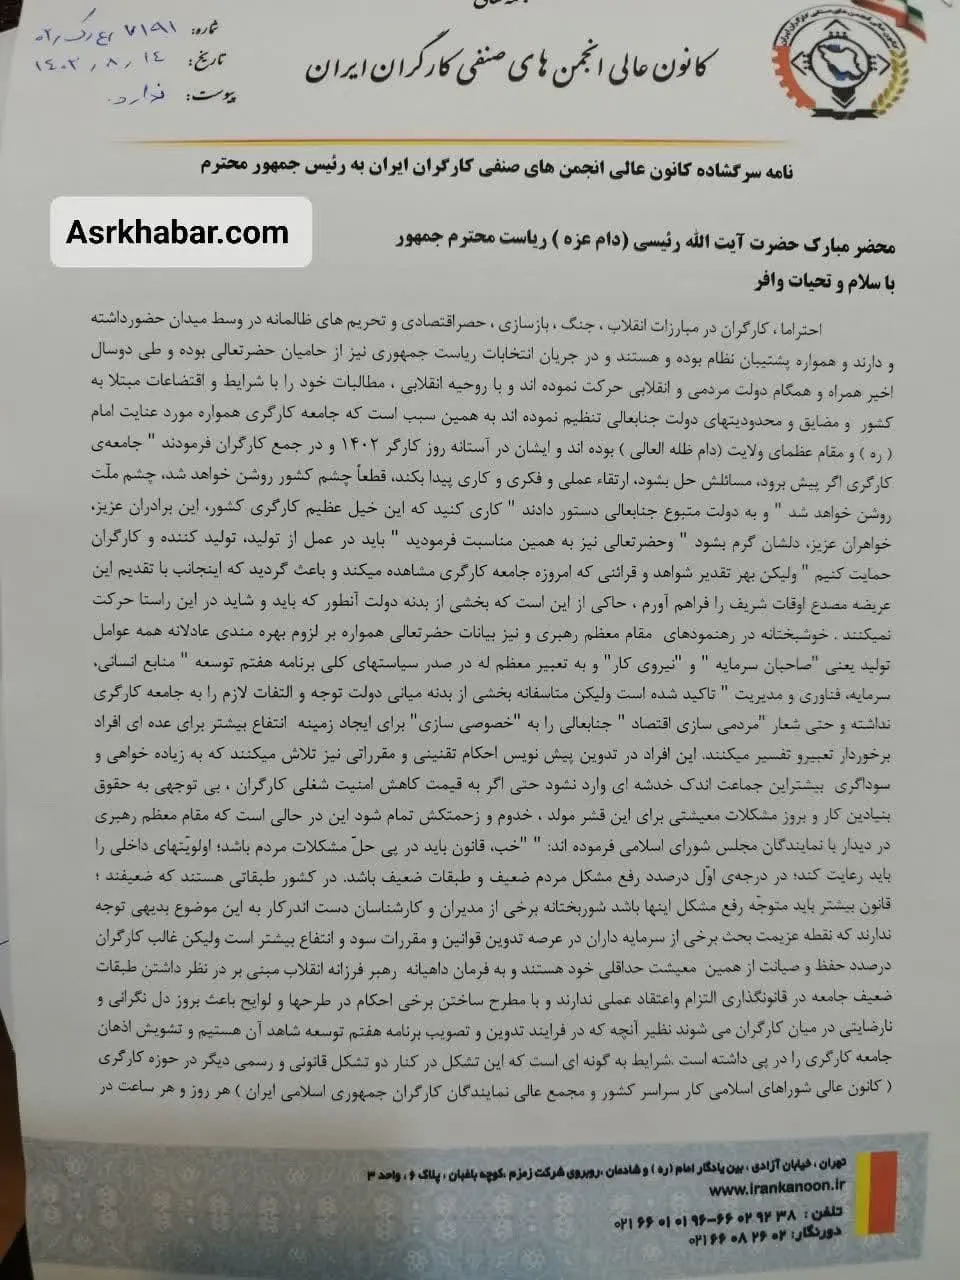 کانون عالی انجمن های صنفی کارگران ایران
شماره: ۷۱۹۱
تاریخ: ۱۴۰۲/۸/۱۴
پیوست: ندارد
نامه سرگشاده کانون عالی انجمن های صنفی کارگران ایران به رئیس جمهور محترم
Asrkhabar.com
محضر مبارک حضرت آیت الله رئیسی (دام عزه ) ریاست محترم جمهور
با سلام و تحیات وافر
احتراما ، کارگران در مبارزات انقلاب ، جنگ ، بازسازی ، حصراقتصادی و تحریم های ظالمانه در وسط میدان حضورداشته
و دارند و همواره پشتیبان نظام بوده و هستند و در جریان انتخابات ریاست جمهوری نیز از حامیان حضرتعالی بوده و طی دوسال
اخیر همراه و همگام دولت مردمی و انقلابی حرکت نموده اند و با روحیه انقلابی ، مطالبات خود را با شرایط و اقتضاعات مبتلا به
کشور و مضایق و محدودیتهای دولت جنابعالی تنظیم نموده اند به همین سبب است که جامعه کارگری همواره مورد عنایت امام
( ره ) و مقام عظمای ولایت (دام ظله العالی ) بوده اند و ایشان در آستانه روز کارگر ۱۴۰۲ و در جمع کارگران فرمودند " جامعه‌ی
کارگری اگر پیش برود، مسائلش حل بشود، ارتقاء عملی و فکری و کاری پیدا بکند، قطعاً چشم کشور روشن خواهد شد، چشم ملّت
روشن خواهد شد " و به دولت متبوع جنابعالی دستور دادند " کاری کنید که این خیل عظیم کارگری کشور، این برادران عزیز،
خواهران عزیز، دلشان گرم بشود " وحضرتعالی نیز به همین مناسبت فرمودید " باید در عمل از تولید، تولید کننده و کارگران
حمایت کنیم " ولیکن بهر تقدیر شواهد و قرائنی که امروزه جامعه کارگری مشاهده میکند و باعث گردید که اینجانب با تقدیم این
عریضه مصدع اوقات شریف را فراهم آورم ، حاکی از این است که بخشی از بدنه دولت آنطور که باید و شاید در این راستا حرکت
نمیکنند . خوشبختانه در رهنمودهای مقام معظم رهبری و نیز بیانات حضرتعالی همواره بر لزوم بهره مندی عادلانه همه عوامل
تولید یعنی "صاحبان سرمایه " و "نیروی کار" و به تعبیر معظم له در صدر سیاستهای کلی برنامه هفتم توسعه " منابع انسانی،
سرمایه، فناوری و مدیریت " تاکید شده است ولیکن متاسفانه بخشی از بدنه میانی دولت توجه و التفات لازم را به جامعه کارگری
نداشته و حتی شعار "مردمی سازی اقتصاد " جنابعالی را به "خصوصی سازی" برای ایجاد زمینه انتفاع بیشتر برای عده ای افراد
برخوردار تعبیرو تفسیر میکنند. این افراد در تدوین پیش نویس احکام تقنینی و مقرراتی نیز تلاش میکنند که به زیاده خواهی و
سوداگری بیشتراین جماعت اندک خدشه ای وارد نشود حتی اگر به قیمت کاهش امنیت شغلی کارگران ، بی توجهی به حقوق
بنیادین کار و بروز مشکلات معیشتی برای این قشر مولد ، خدوم و زحمتکش تمام شود این در حالی است که مقام معظم رهبری
در دیدار با نمایندگان مجلس شورای اسلامی فرموده اند: " "خب، قانون باید در پی حلّ مشکلات مردم باشد؛ اولویّتهای داخلی را
باید رعایت کند؛ در درجه‌ی اوّل درصدد رفع مشکل مردم ضعیف و طبقات ضعیف باشد. در کشور طبقاتی هستند که ضعیفند ؛
قانون بیشتر باید متوجّه رفع مشکل اینها باشد شوربختانه برخی از مدیران و کارشناسان دست اندرکار به این موضوع بدیهی توجه
ندارند که نقطه عزیمت بحث برخی از سرمایه داران در عرصه تدوین قوانین و مقررات سود و انتفاع بیشتر است ولیکن غالب کارگران
درصدد حفظ و صیانت از همین معیشت حداقلی خود هستند و به فرمان داهیانه رهبر فرزانه انقلاب مبنی بر در نظر داشتن طبقات
ضعیف جامعه در قانونگذاری التزام واعتقاد عملی ندارند و با مطرح ساختن برخی احکام در طرحها و لوایح باعث بروز دل نگرانی و
نارضایتی در میان کارگران می شوند نظیر آنچه که در فرایند تدوین و تصویب برنامه هفتم توسعه شاهد آن هستیم و تشویش اذهان
جامعه کارگری را در پی داشته است .شرایط به گونه ای است که این تشکل در کنار دو تشکل قانونی و رسمی دیگر در حوزه کارگری
( کانون عالی شوراهای اسلامی کار سراسر کشور و مجمع عالی نمایندگان کارگران جمهوری اسلامی ایران ) هر روز و هر ساعت در
تهران ، خیابان آزادی ، بین یادگار امام (ره ) و شادمان ،روبروی شرکت زمزم ،کوچه باغبان ، پلاک ۶ ، واحد ۳
www.irankanoon.ir
تلفن : ۰۲۱۶۶۰۱۰۱۹۶-۶۶۰۲۹۲۳۸
دورنگار: ۰۲۱۶۶۰۸۲۶۰۲